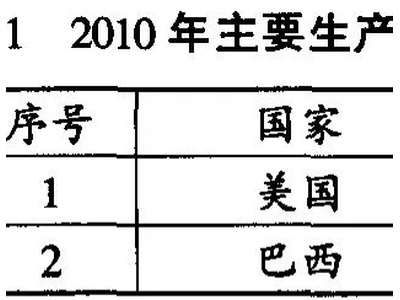 1 2010年主要生产
序号 国家
1 美国
2 巴西